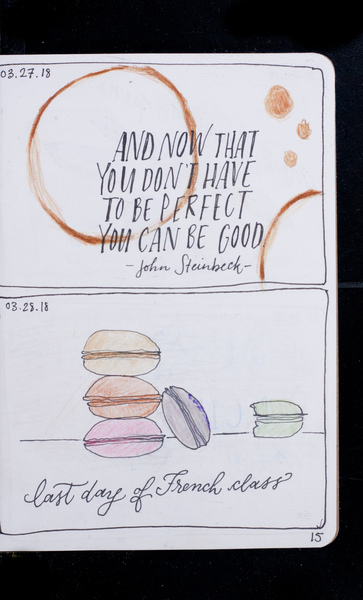 03.27.18
AND NOW THAT
YOU DON'T HAVE
TO BE PERFECT
YOU CAN BE GOOD.
-John Steinbeck-
03.28.18
last day of French class
15